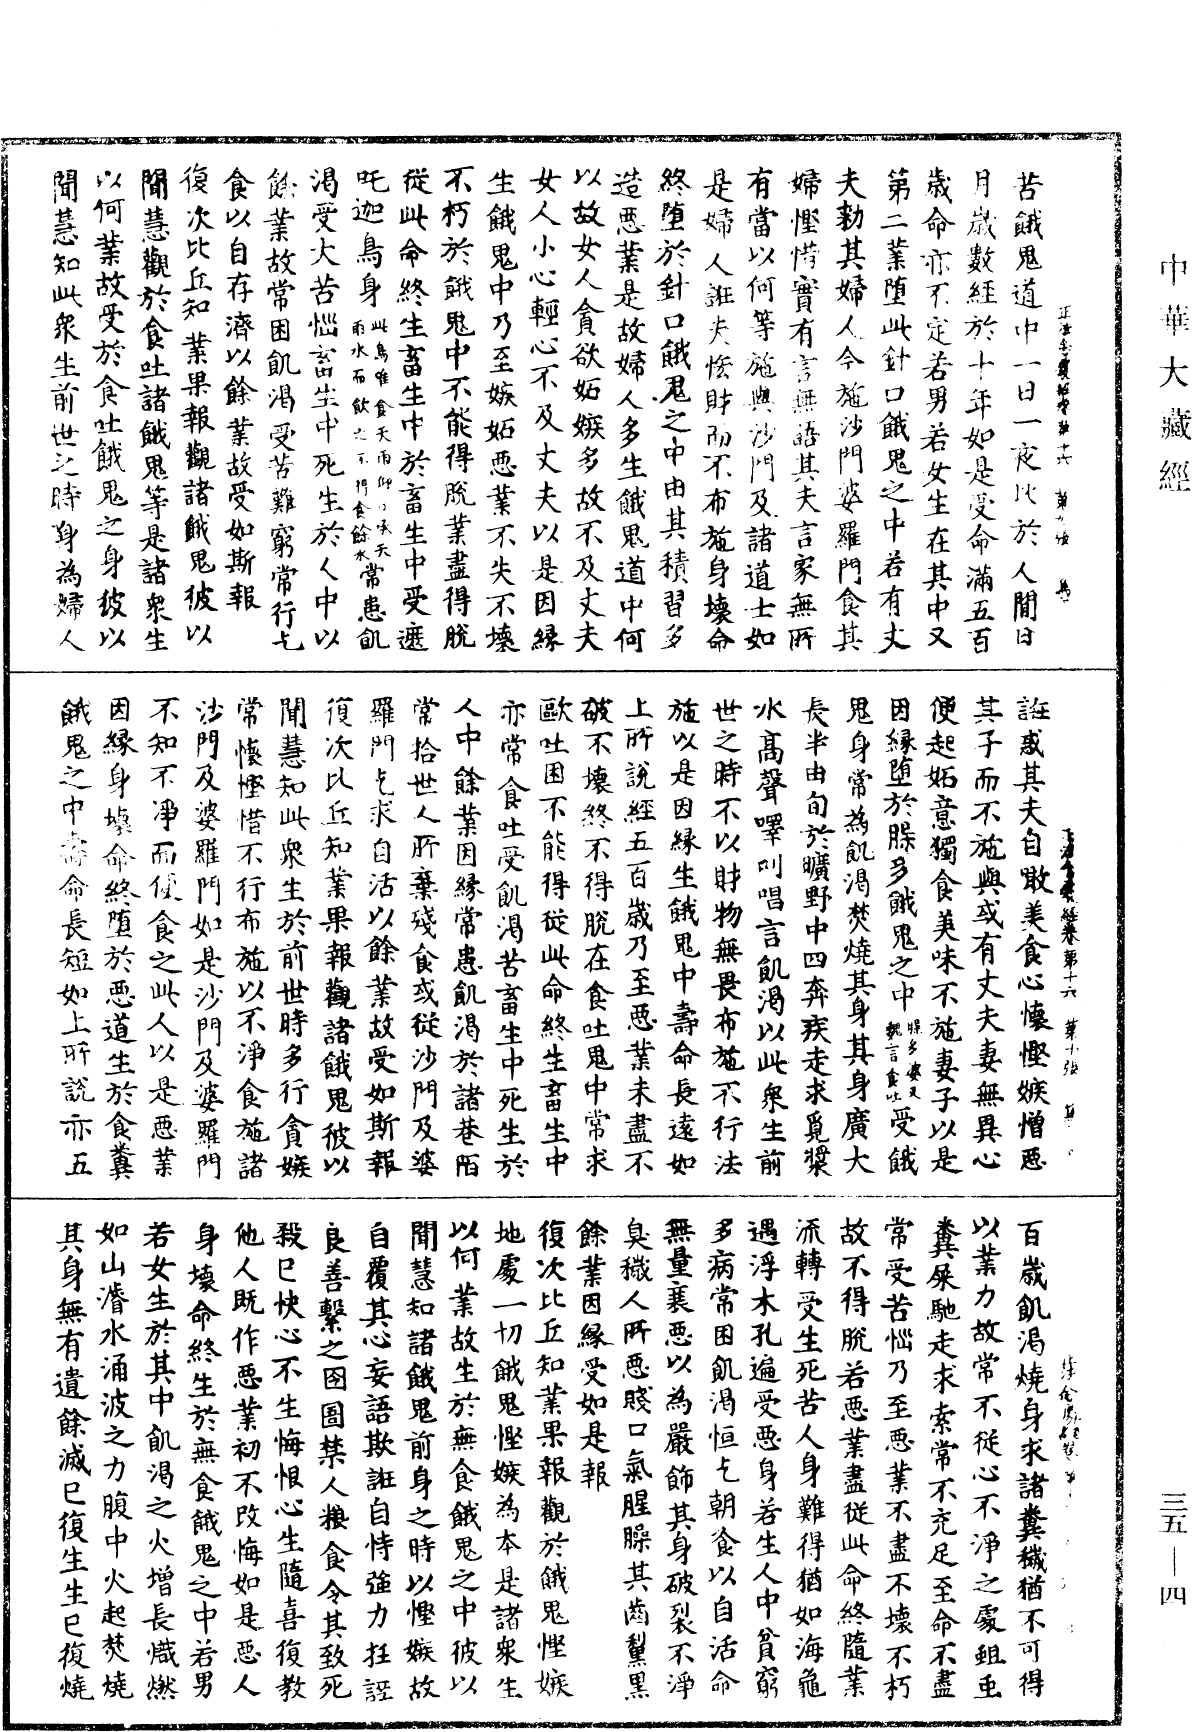 中華大藏經
三五—四
苦餓鬼道中一日一夜比於人間日
月歲數經於十年如是受命滿五百
歲命亦不定若男若女生在其中又
第二業墮此針口餓鬼之中若有丈
夫勑其婦人令施沙門婆羅門食其
婦慳惜實有言無語其夫言家無所
有當以何等施與沙門及諸道士如
是婦人誑夫悋財而不布施身壞命
終墮於針口餓鬼之中由其積習多
造惡業是故婦人多生餓鬼道中何
以故女人貪欲妬嫉多故不及丈夫
女人小心輕心不及丈夫以是因緣
生餓鬼中乃至嫉妬惡業不失不壞
不朽於餓鬼中不能得脫業盡得脫
從此命終生畜生中於畜生中受遮
吒迦鳥身此鳥唯食天雨仰口承天雨水而飲之不得食餘水常患飢
渴受大苦惱畜生中死生於人中以
餘業故常困飢渴受苦難窮常行乞
食以自存濟以餘業故受如斯報
復次比丘知業果報觀諸餓鬼彼以
聞慧觀於食吐諸餓鬼等是諸衆生
以何業故受於食吐餓鬼之身彼以
聞慧知此衆生前世之時身為婦人
正法念處經卷第十六 第九張
誑惑其夫自噉美食心懷慳嫉憎惡
其子而不施與或有丈夫妻無異心
便起妬意獨食美味不施妻子以是
因緣墮於臊多餓鬼之中臊多婆叉魏言食吐受餓
鬼身常為飢渴焚燒其身其身廣大
長半由旬於曠野中四奔疾走求覓漿
水高聲嘷叫唱言飢渴以此衆生前
世之時不以財物無畏布施不行法
施以是因緣生餓鬼中壽命長遠如
上所說經五百歲乃至惡業未盡不
破不壞終不得脫在食吐鬼中常求
歐吐困不能得從此命終生畜生中
亦常食吐受飢渴苦畜生中死生於
人中餘業因緣常患飢渴於諸巷陌
常拾世人所棄殘食或從沙門及婆
羅門乞求自活以餘業故受如斯報
復次比丘知業果報觀諸餓鬼彼以
聞慧知此衆生於前世時多行貪嫉
常懷慳惜不行布施以不淨食施諸
沙門及婆羅門如是沙門及婆羅門
不知不淨而便食之此人以是惡業
因緣身壞命終墮於惡道生於食糞
餓鬼之中壽命長短如上所說亦五
正法念處經卷第十六 第十張
百歲飢渴燒身求諸糞穢猶不可得
以業力故常不從心不淨之處蛆虫
糞屎馳走求索常不充足至命不盡
常受苦惱乃至惡業不盡不壞不朽
故不得脫若惡業盡從此命終隨業
流轉受生死苦人身難得猶如海龜
遇浮木孔遍受惡身若生人中貧窮
多病常困飢渴恒乞朝飡以自活命
無量衰惡以為嚴飾其身破裂不淨
臭穢人所惡賤口氣腥臊其齒黧黑
餘業因緣受如是報
復次比丘知業果報觀於餓鬼慳嫉
地處一切餓鬼慳嫉為本是諸衆生
以何業故生於無食餓鬼之中彼以
聞慧知諸餓鬼前身之時以慳嫉故
自覆其心妄語欺誑自恃強力抂誣
良善繫之囹圄禁人糧食令其致死
殺已快心不生悔恨心生隨喜復教
他人既作惡業初不改悔如是惡人
身壞命終生於無食餓鬼之中若男
若女生於其中飢渴之火增長熾燃
如山濬水涌波之力腹中火起焚燒
其身無有遺餘滅已復生生已復燒